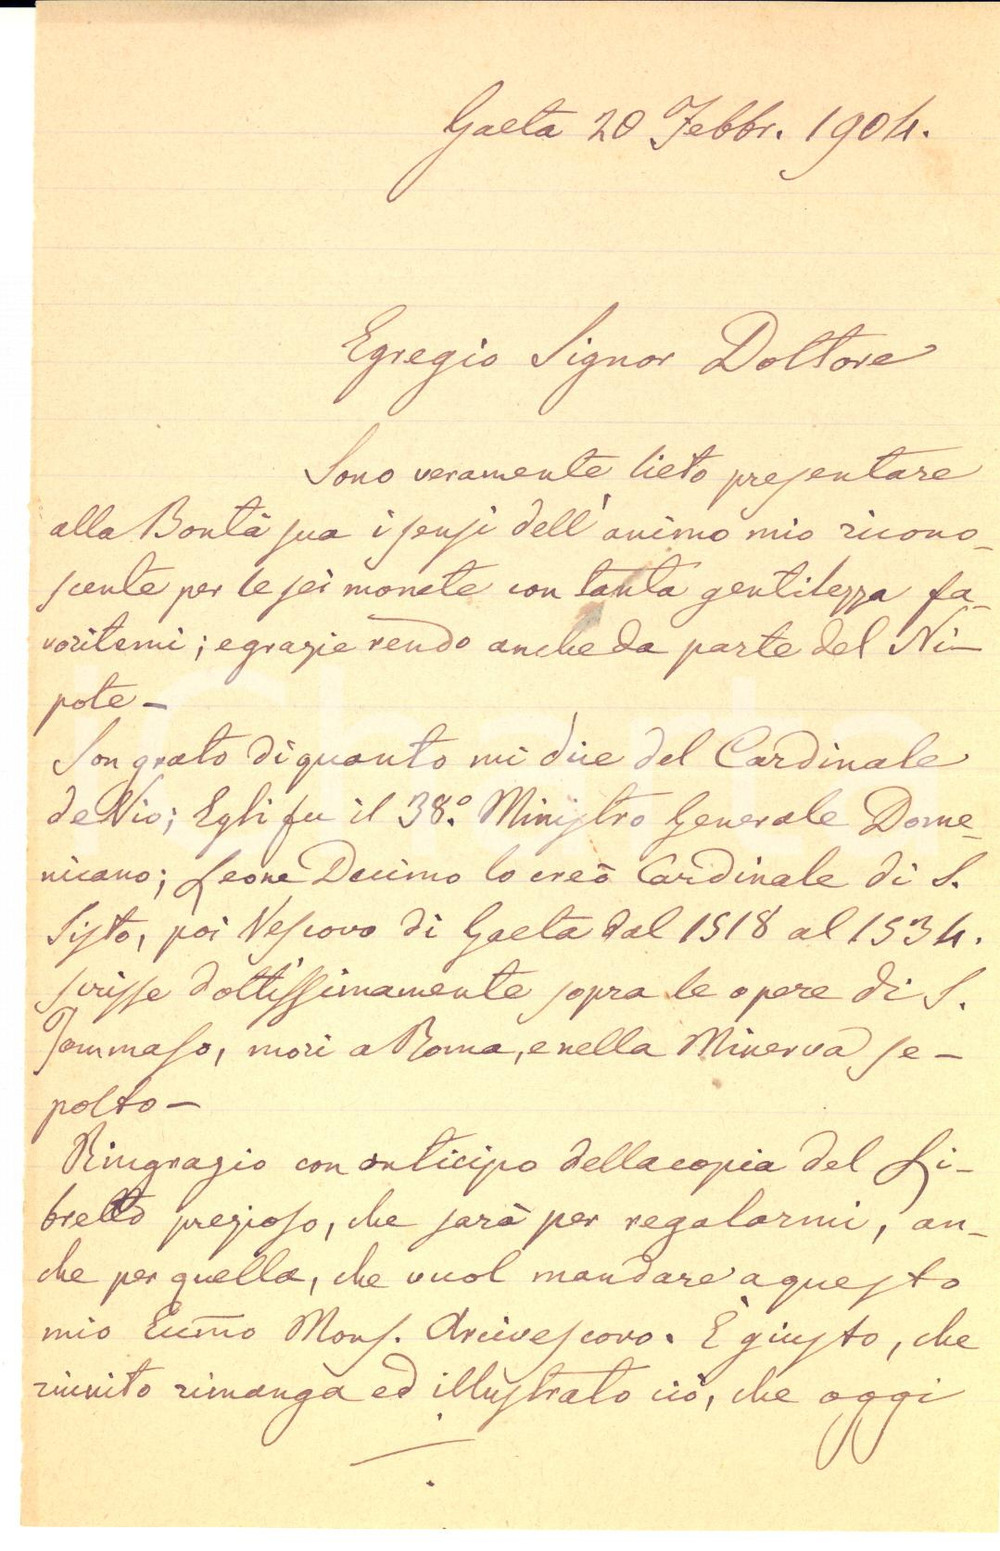 Gaeta 20 Febbr. 1904.
Egregio Signor Dottore
Sono veramente lieto presentare
alla Bontà sua i sensi dell'animo mio ricono-
scente per le sei monete con tanta gentilezza fa-
voritemi; e grazie rendo anche da parte del Ni-
pote-
Son grato di quanto mi dice del Cardinale
de Vio; Egli fu il 38.º Ministro Generale Dome-
nicano; Leone Decimo lo creò Cardinale di S.
Sisto, poi Vescovo di Gaeta dal 1518 al 1534.
scrisse dottissimamente sopra le opere di S.
Tommaso, morì a Roma, e nella Minerva se-
polto-
Ringrazio con anticipo della copia del Li-
bretto prezioso, che sarà per regalarmi, an-
che per quella, che vuol mandare a questo
mio Ecc̄mo Mons. Arcivescovo. È giusto, che
riunito rimanga ed illustrato ciò, che oggi